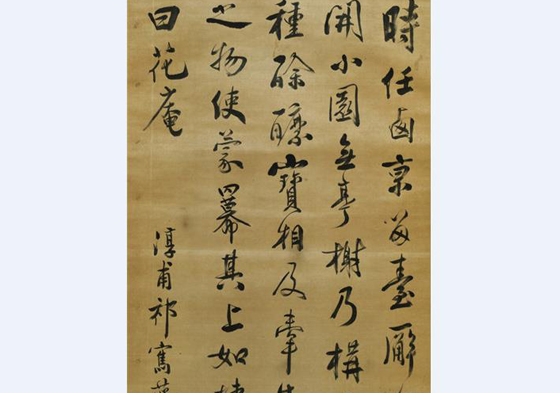 時任西京留臺廨
開小園無亭榭乃構
種酴醾寶相及牽
之物使蒙羃其上如
曰花庵
淳甫祁寯